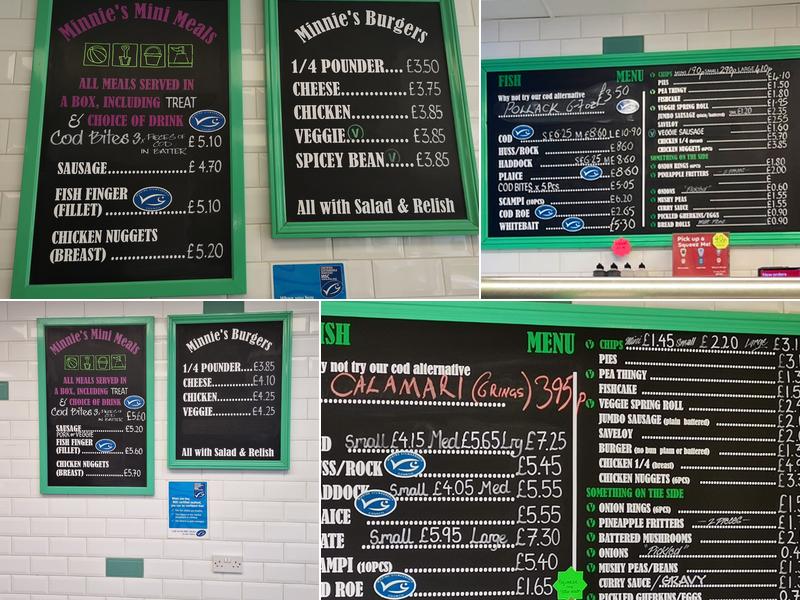 Minnie's Mini Meals
ALL MEALS SERVED IN
A BOX, INCLUDING TREAT
& CHOICE OF DRINK
Cod Bites 3, PIECES OF COD IN BATTER £5.10
SAUSAGE £4.70
FISH FINGER
(FILLET) £5.10
CHICKEN NUGGETS
(BREAST) £5.20
Minnie's Burgers
1/4 POUNDER.... £3.50
CHEESE £3.75
CHICKEN £3.85
VEGGIE V £3.85
SPICY BEAN V £3.85
All with Salad & Relish
FISH MENU
Why not try our cod alternative £3.50
POLLACK 6-7oz
COD S £6.25 M £8.60 L £10.90
HUSS/ROCK £8.60
HADDOCK S £6.25 M £8.60
PLAICE £8.60
COD BITES x 5 Pcs £5.05
SCAMPI (10PCS) £6.20
COD ROE £2.65
WHITEBAIT £5.30
CHIPS MINI 190p SMALL 290p LARGE 410p
PIES £4.10
PEA THINGY £1.50
FISHCAKE £1.80
VEGGIE SPRING ROLL
JUMBO SAUSAGE (plain/battered)
SAVELOY
VEGGIE SAUSAGE
CHICKEN 1/4 (breast)
CHICKEN NUGGETS (6PCS)
SOMETHING ON THE SIDE
ONION RINGS (6PCS) £1.80
PINEAPPLE FRITTERS £2.00
ONIONS "Pickled"
MUSHY PEAS
CURRY SAUCE
PICKLED GHERKINS/EGGS £0.90
BREAD ROLLS £0.90
Pick up a
Squeeze Me!
Minnie's Mini Meals
ALL MEALS SERVED IN
A BOX, INCLUDING TREAT
& CHOICE OF DRINK
Cod Bites 3, PIECES OF COD IN BATTER £5.60
SAUSAGE £5.20
PORK or VEGGIE
FISH FINGER
(FILLET) £5.60
CHICKEN NUGGETS
(BREAST) £5.70
Minnie's Burgers
1/4 POUNDER.... £3.85
CHEESE £4.10
CHICKEN £4.25
VEGGIE £4.25
All with Salad & Relish
ISH MENU
y not try our cod alternative
CALAMARI (6 RINGS) 395p
D Small £4.15 Med £5.65 Lrg £7.25
SS/ROCK £5.45
DDOCK Small £4.05 Med £5.55
AICE £5.55
ATE Small £5.95 Large £7.30
AMPI (10PCS) £5.40
D ROE £1.65
CHIPS Mini £1.45 Small £2.20 Large £3.1
PIES
PEA THINGY
FISHCAKE
VEGGIE SPRING ROLL
JUMBO SAUSAGE (plain battered)
SAVELOY
BURGER (no bun plain or battered)
CHICKEN 1/4 (breast)
CHICKEN NUGGETS (6PCS)
SOMETHING ON THE SIDE
ONION RINGS (6PCS)
PINEAPPLE FRITTERS
BATTERED MUSHROOMS
ONIONS "Pickled"
MUSHY PEAS/BEANS
CURRY SAUCE/GRAVY
PICKLED GHERKINS/EGGS